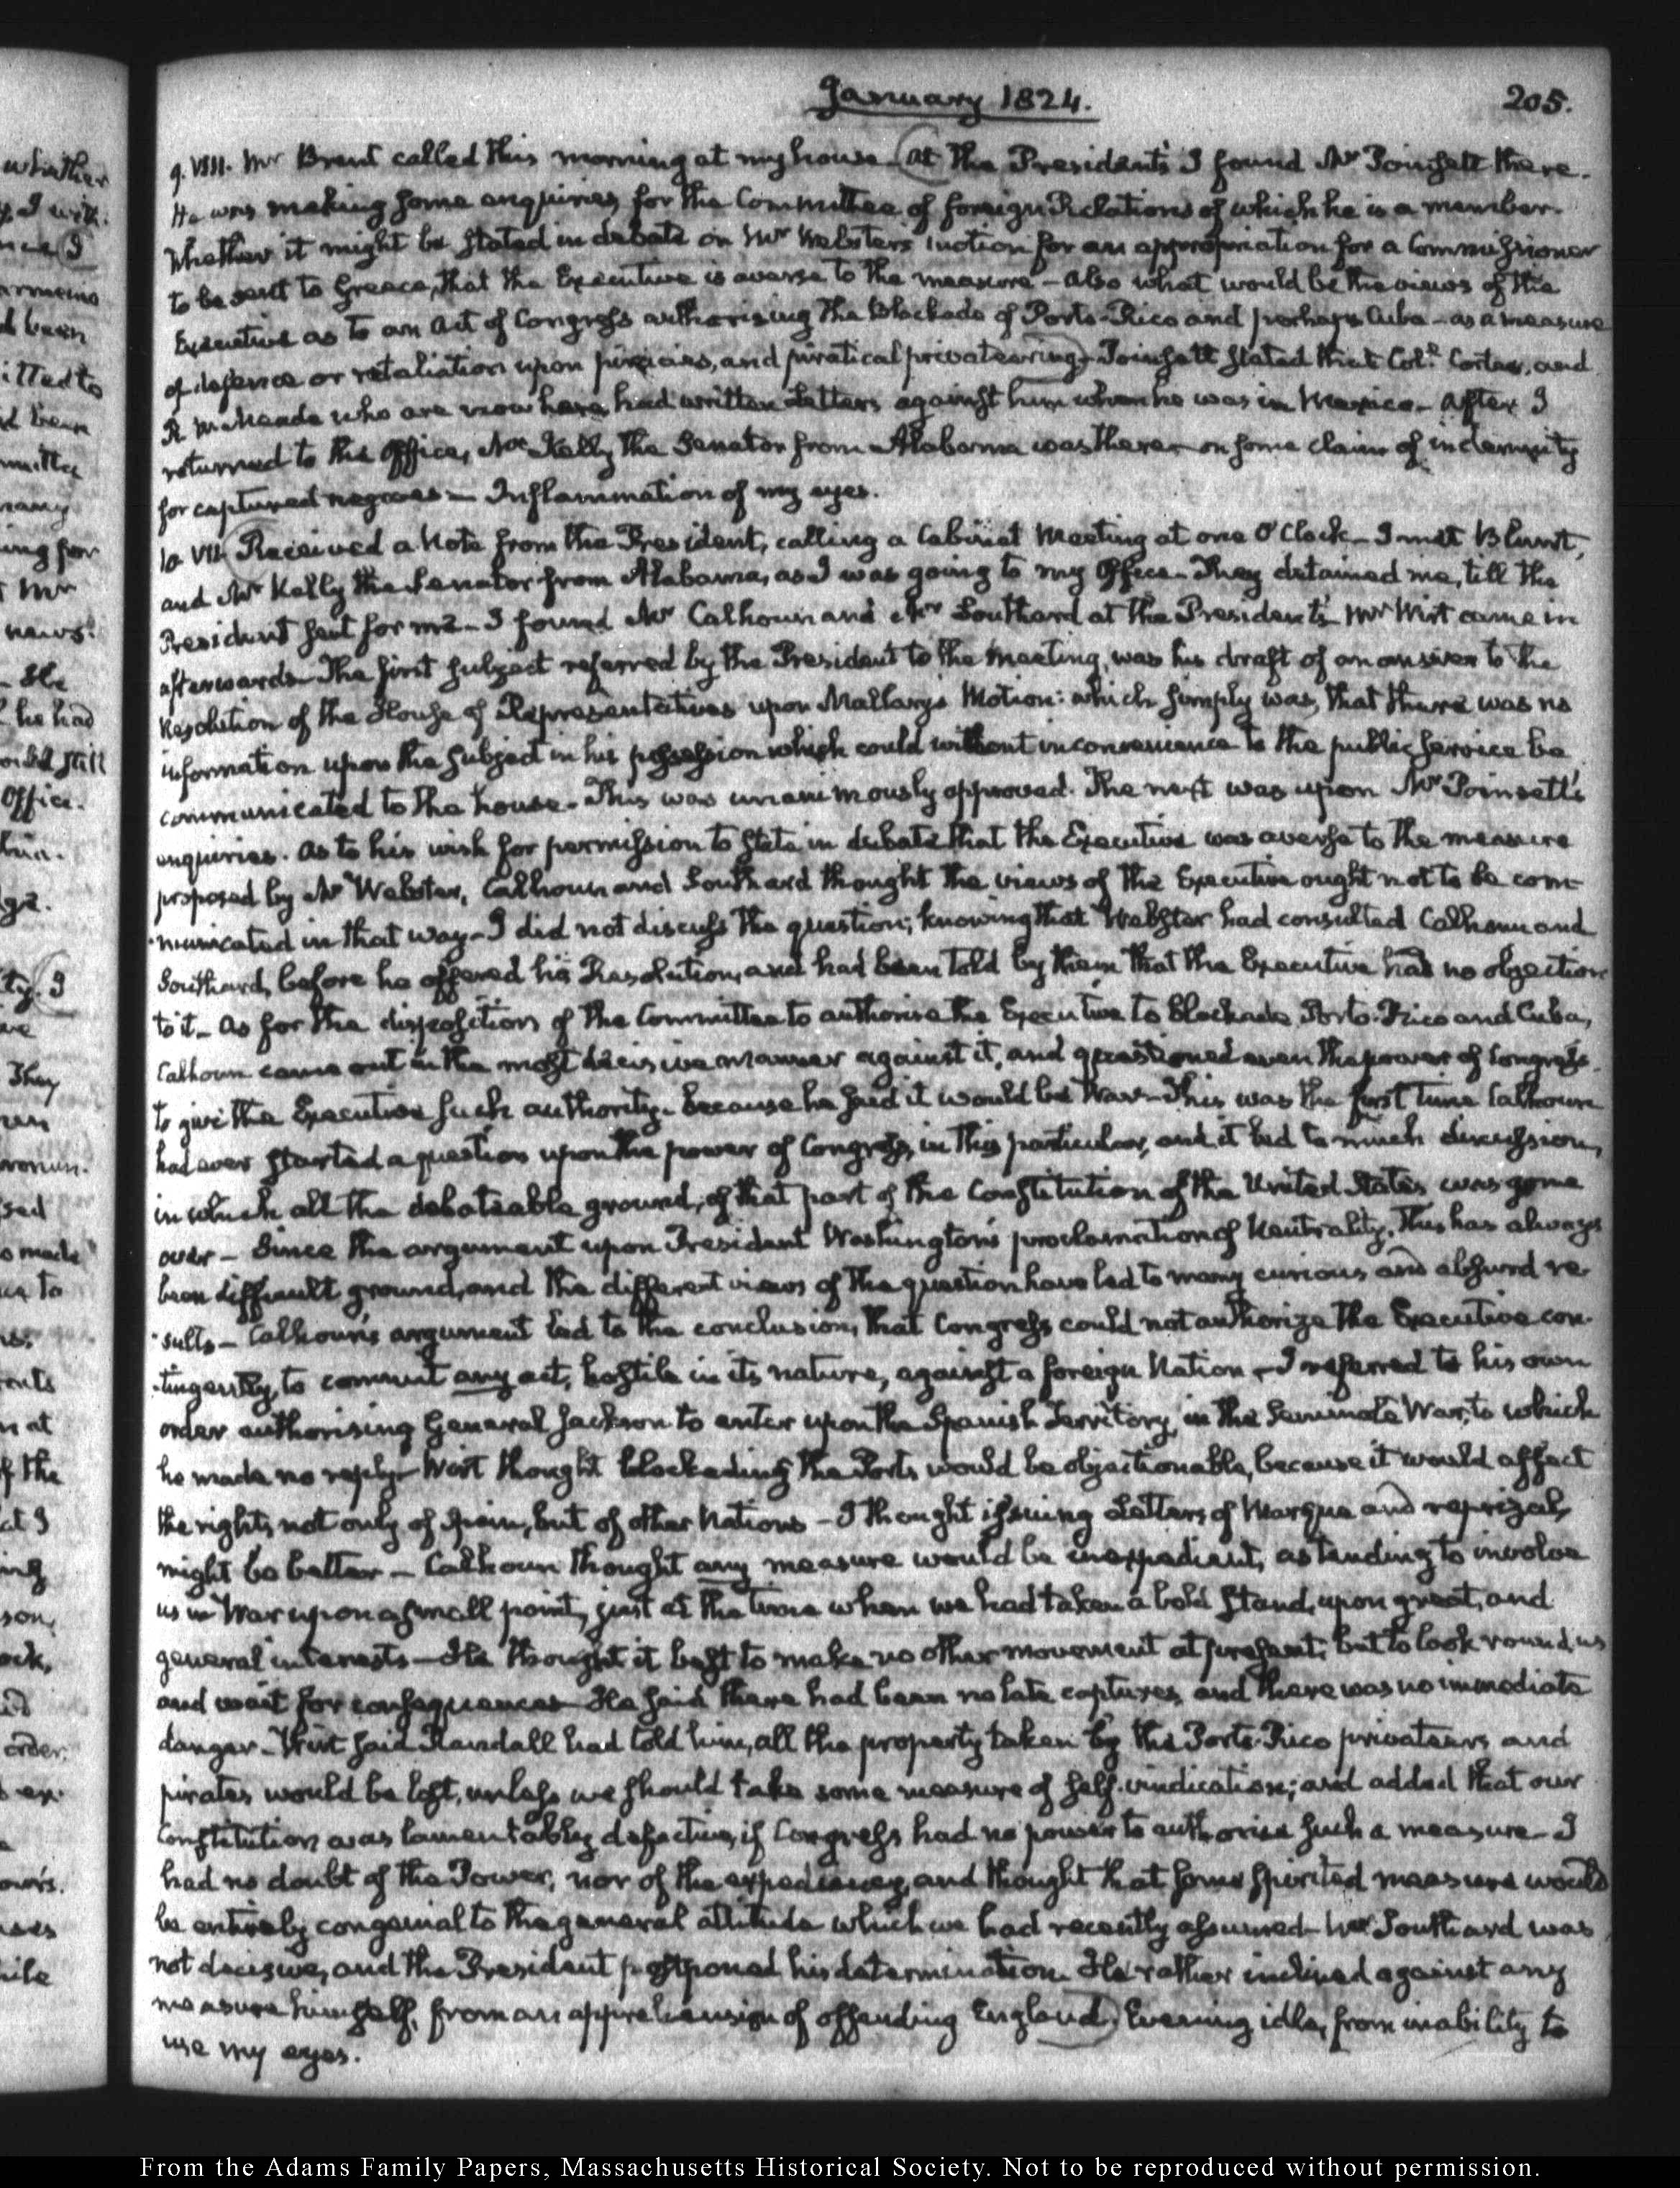 January 1824.
205.
9. VIII. Mr Brent called this morning at my house— (At the Presidents I found Mr Poinsett there.
He was making some enquiries for the Committee of foreign Relations of which he is a member.
Whether it might be stated in debate on Mr Webster's motion for an appropriation for a Commissioner
to be sent to Greece, that the Executive is averse to the measure— also what would be the views of the
Executive as to an Act of Congress authorising the blockade of Porto-Rico and perhaps Cuba— as a measure
of defence or retaliation upon piracies, and piratical privateering)— Poinsett stated that Coll. Cortes, and
R Meade who are now here, had written Letters against him when he was in Mexico— After I
returned to the Office, Mr Kelly the Senator from Alabama was there— on some claim of indemnity
for captured negroes— Inflammation of my eyes.
10 VII. (Received a Note from the President, calling a Cabinet Meeting at one O'Clock— I met Blunt,
and Mr Kelly the Senator from Alabama, as I was going to my Office— They detained me, till the
President sent for me— I found Mr Calhoun and Mr Southard at the President's— Mr Wirt came in
afterwards— The first subject referred by the President to the meeting, was his draft of an answer to the
Resolution of the House of Representatives upon Mallary's Motion: which simply was, that there was no
information upon the subject in his possession which could without inconvenience to the public service be
communicated to the house— This was unanimously approved. The next was upon Mr Poinsett's
enquiries. As to his wish for permission to state in debate that the Executive was averse to the measure
proposed by Mr Webster, Calhoun and Southard thought the views of the Executive ought not to be com-
-municated in that way— I did not discuss the question; knowing that Webster had consulted Calhoun and
Southard, before he offered his Resolution, and had been told by them that the Executive had no objection
to it— As for the disposition of the Committee to authorise the Executive to blockade Porto-Rico and Cuba,
Calhoun came out in the most decisive manner against it, and questioned even the power of Congress
to give the Executive such authority— Because he said it would be War— This was the first time Calhoun
had ever started a question upon the power of Congress, in this particular, and it led to much discussion,
in which all the debateable ground, of that part of the Constitution of the United States was gone
over— Since the argument upon President Washington's proclamation of Neutrality, This has always
been difficult ground, and the different views of the question have led to many curious and absurd re-
-sults— Calhoun's argument led to the conclusion, that Congress could not authorize the Executive con-
-tingently, to commit any act, hostile in its nature, against a foreign Nation— I referred to his own
order authorising General Jackson to enter upon the Spanish Territory, in the Seminole War, to which
he made no reply— Wirt thought blockading the Ports would be objectionable, because it would affect
the rights, not only of Spain, but of other Nations— I thought issuing Letters of Marque and reprizal,
might be better— Calhoun thought any measure would be inexpedient, as tending to involve
us in War upon a small point, just at the time when we had taken a bold stand, upon great, and
general interests— He thought it best to make no other movement at present; but to look round us
and wait for consequences— He said there had been no late captures, and there was no immediate
danger— Wirt said Randall had told him, all the property taken by the Porto-Rico privateers and
pirates would be lost, unless we should take some measure of self-vindication; and added that our
Constitution was lamentably defective, if Congress had no power to authorise such a measure— I
had no doubt of the Power, nor of the expediency, and thought that some spirited measure would
be entirely congenial to the general attitude which we had recently assumed— Mr Southard was
not decisive, and the President postponed his determination. He rather inclined against any
measure himself, from an apprehension of offending England.) Evening idle, from inability to
use my eyes.
From the Adams Family Papers, Massachusetts Historical Society. Not to be reproduced without permission.